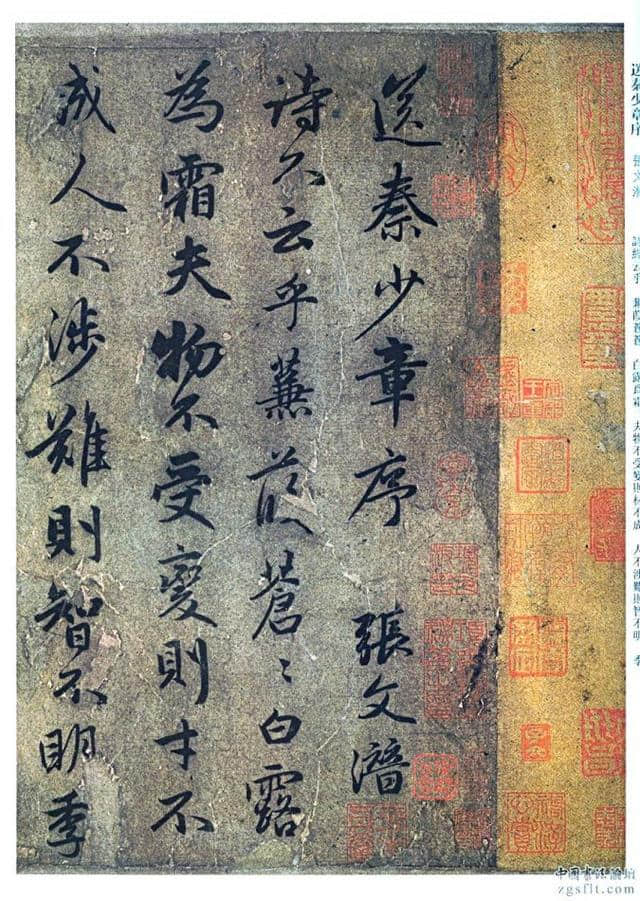 送秦少章序 張文潛 云乎 蒹葭蒼蒼 白露爲霜 夫物不受變則材不成 人不涉難則智不明 季
送秦少章序 張文潛
诗不云乎蒹葭蒼〻白露
為霜夫物不受變則才不
成人不涉難則智不明季
中國書法論壇
zgsflt.com